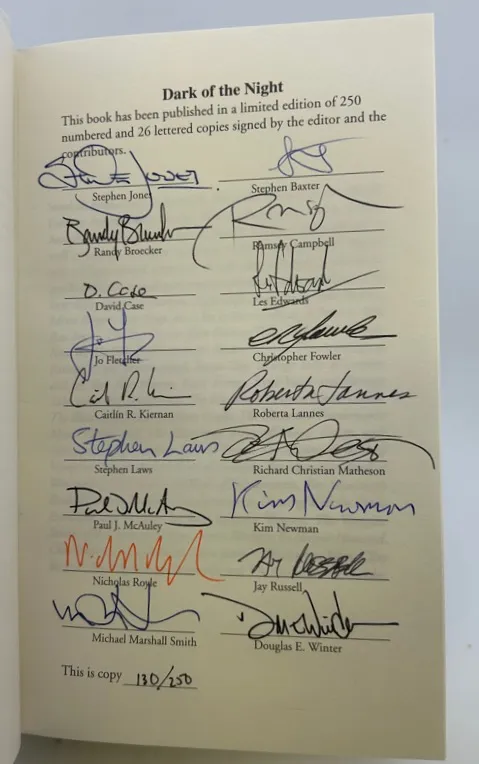 Dark of the Night
This book has been published in a limited edition of 250
numbered and 26 lettered copies signed by the editor and the
contributors.
Stephen Jones
Stephen Jones
Stephen Baxter
Randy Broecker
Ramsey Campbell
D. Case
David Case
Les Edwards
Les Edwards
Jo Fletcher
Christopher Fowler
Caitlín R. Kiernan
Roberta Lannes
Roberta Lannes
Stephen Laws
Stephen Laws
Richard Christian Matheson
Paul J. McAuley
Kim Newman
Kim Newman
Nicholas Royle
Jay Russell
Michael Marshall Smith
Douglas E. Winter
This is copy 130/250